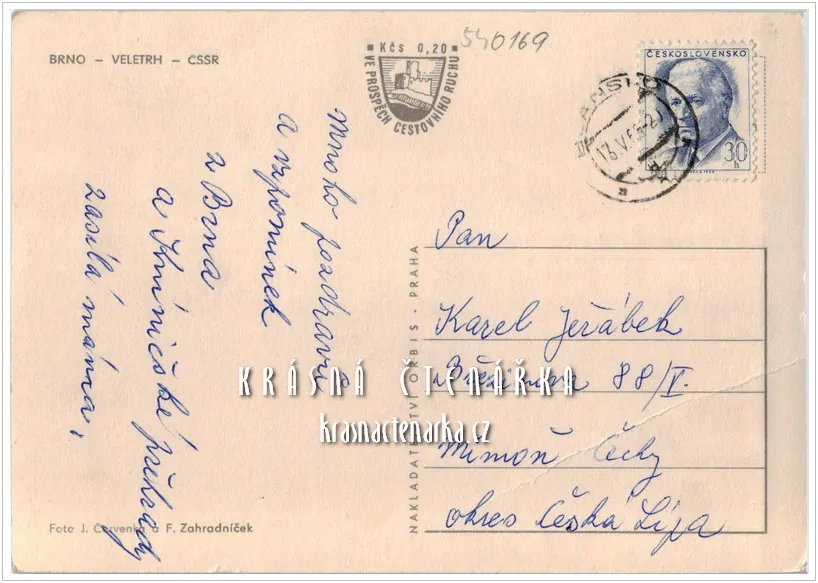 BRNO – VELETRH – ČSSR
Kčs 0,20
VE PROSPĚCH CESTOVNÍHO RUCHU
540169
ČESKOSLOVENSKO
30 h
Mnoho pozdravů
a vzpomínek
z Brna
a Kníničské přehrady
zasílá máma.
NAKLADATELSTVÍ ORBIS - PRAHA
Pan
Karel Jeřábek
88/I.
Mimoň Čechy
okres Česká Lípa
KRÁSNÁ ČTENÁŘKA
krasnactenarka.cz
Foto J. Červenka a F. Zahradníček